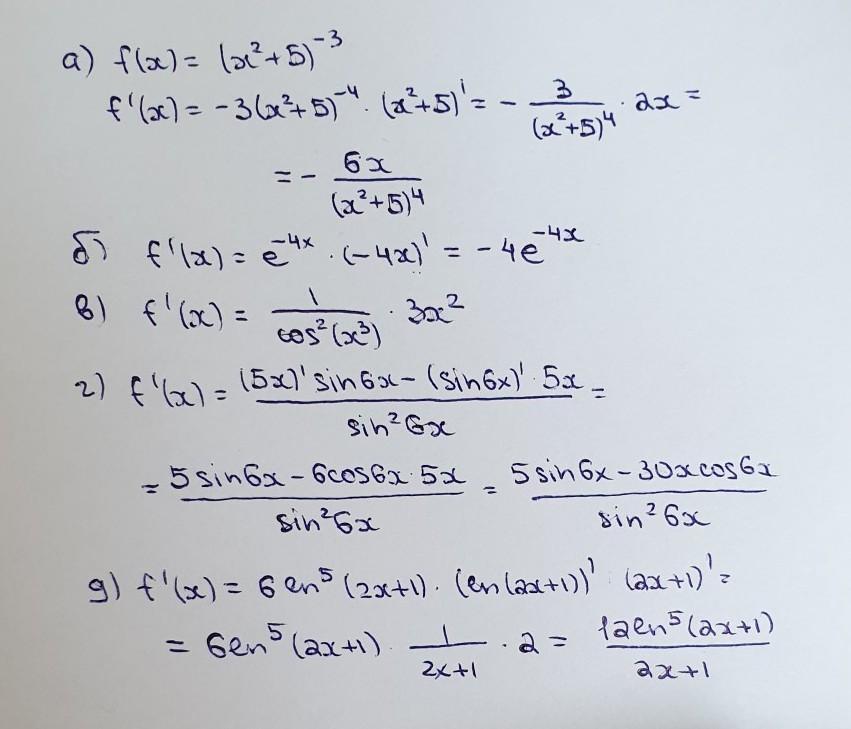 а) f(x) = (x²+5)⁻³
f'(x) = -3(x²+5)⁻⁴ · (x²+5)' = - 3/(x²+5)⁴ · 2x =
= - 6x/(x²+5)⁴
б) f'(x) = e⁻⁴ˣ · (-4x)' = -4e⁻⁴ˣ
в) f'(x) = 1/cos²(x³) · 3x²
г) f'(x) = ((5x)' sin6x - (sin6x)' · 5x)/sin²6x =
= (5sin6x - 6cos6x · 5x)/sin²6x = (5sin6x - 30xcos6x)/sin²6x
g) f'(x) = 6ln⁵(2x+1) · (ln(2x+1))' · (2x+1)' =
= 6ln⁵(2x+1) · 1/(2x+1) · 2 = 12ln⁵(2x+1)/(2x+1)